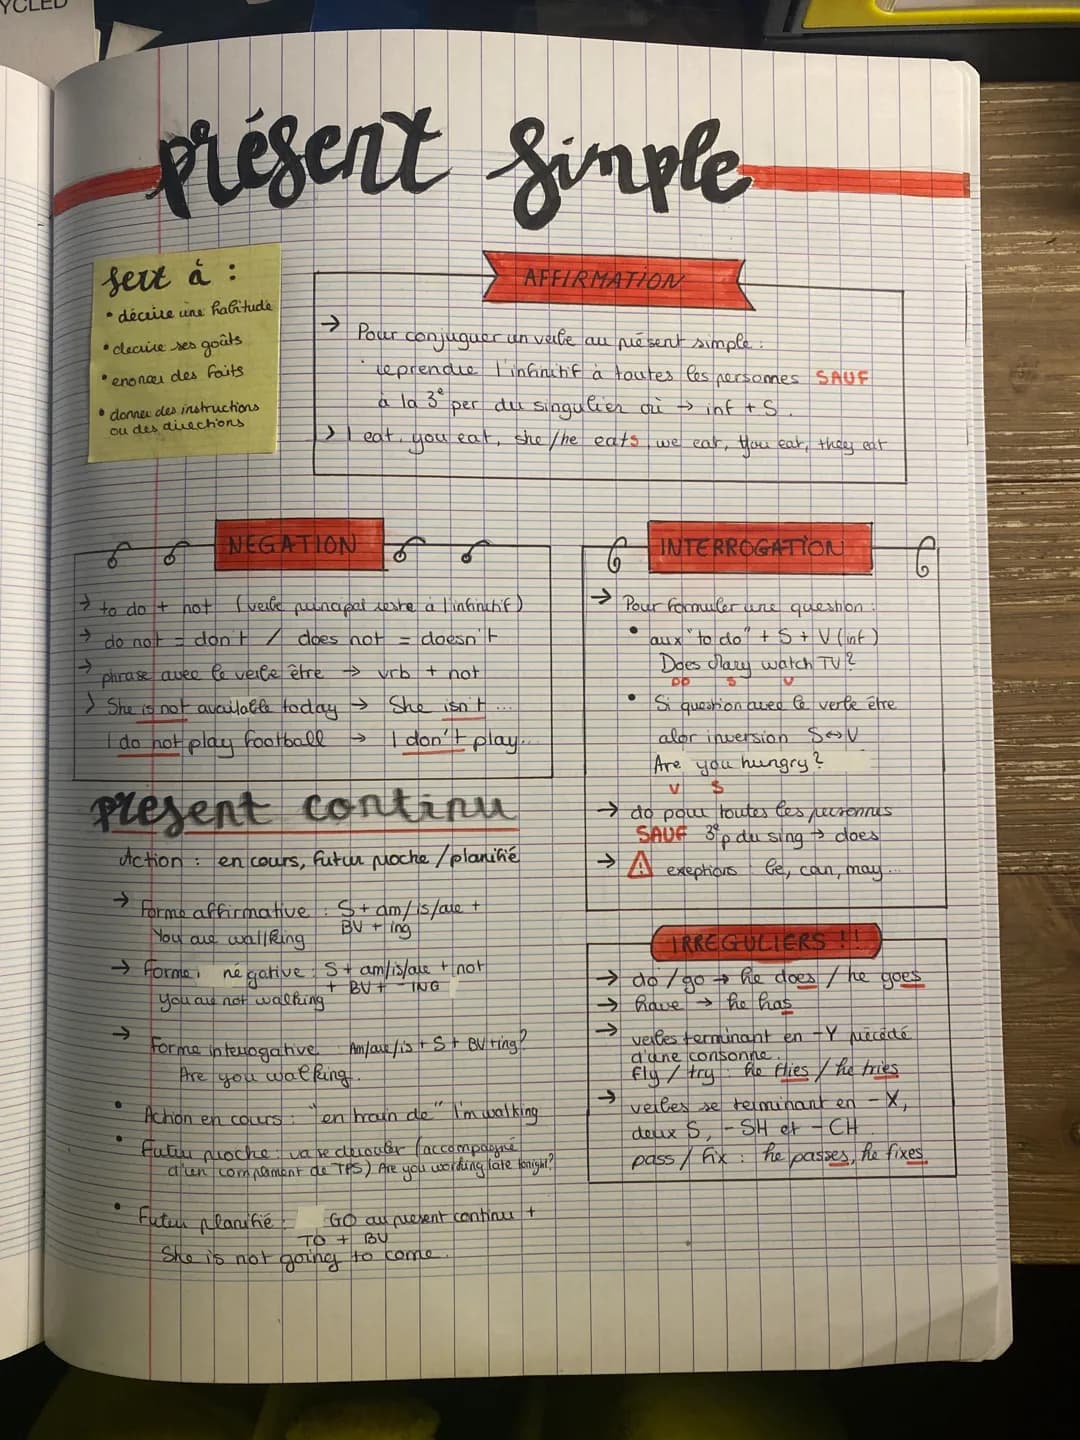 YCLED
présent simple
sert à :
• décrire une habitude
• decrire ses goûts
• enoncer des faits
• donner des instructions
ou des directions
AFFIRMATION
→ Pour conjuguer un verbe au présent simple :
reprendre l'infinitif à toutes les personnes SAUF
à la 3e per du singulier où → inf + S.
> I eat, you eat, she/he eats, we eat, you eat, they eat
NEGATION
→ to do + not (verbe principal reste à l'infinitif)
→ do not = don't / does not = doesn't
→ phrase avec le verbe être → vrb + not
> She is not available today → She isn't ...
I do not play football → I don't play...
INTERROGATION
→ Pour formuler une question :
• aux "to do" + S + V (inf)
Does Mary watch TV ?
DO S V
• Si question avec le verbe être
alor inversion S↔V
Are you hungry ?
V S
→ do pour toutes les personnes
SAUF 3e p du sing → does
→ ⚠ exeptions : be, can, may...
présent continu
Action : en cours, futur proche / planifié
→ Forme affirmative : S + am/is/are +
BV + ing
You are wallking
→ Forme négative : S + am/is/are + not
+ BV + -ING
You are not walking
→ Forme interrogative : Am/are/is + S + BV + ing ?
Are you walking.
• Action en cours : "en train de" I'm walking
• Futur proche : va se derouler (accompagné
d'un complement de TPS) Are you working late tonight?
• Futur planifié : GO au present continu +
TO + BV
She is not going to come.
IRREGULIERS !!
→ do / go → he does / he goes
→ have → he has
→ verbes terminant en -Y précédé
d'une consonne.
fly / try : he flies / he tries
→ verbes se terminant en -X,
deux S, -SH et -CH
pass / fix : he passes, he fixes